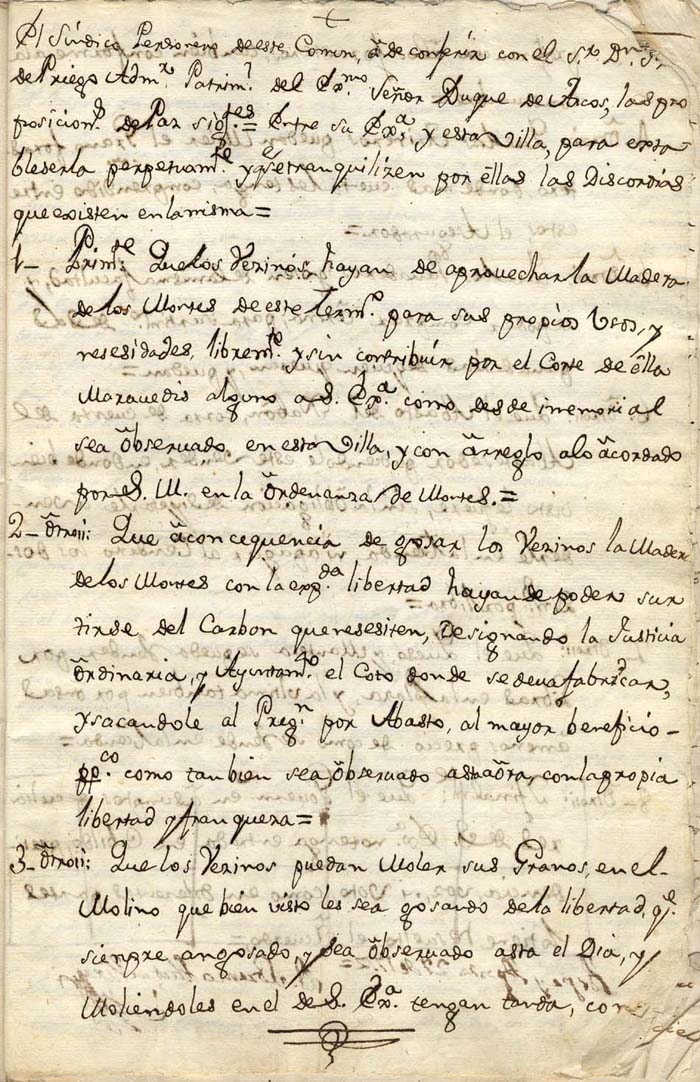 El Síndico Personero deeste Comun, â de conferir con el S.or Dn.
de Priego Adm.r Patrim.l del Ex.mo Señor Duque de Arcos, las pro
posicion.s de Paz sig.tes = Entre su Ex.a y esta Villa, para esta
bleserla perpetuam.te y q.e setranquilizen por ellas las Discordias
que existen enlamisma =
1- Prim.te Quelos Vezinos hayan de aprovechar la Madera
delos Montes deeste Term.o para sus propios Usos, y
nesesidades, librem.te y sin contribuir por el Corte de ella
Maravedis alguno a S. Ex.a como desde inmemorial
sea ôbservado en esta Villa, y con ârreglo alo âcordado
por S. M. en la ôrdenanza de Montes. =
2- ôtroii: Que âconcequencia de gosar los Vezinos la Mader
delos Montes con la exp.da libertad hayan de poder sur
tirse del Carbon que nesesiten, Designando la Justicia
ôrdinaria, y Ayuntam.to el Coto donde se deva fabricar,
y sacandole al Preg.n por Abasto, al mayor beneficio-
pp.co como tambien sea ôbservado asta âora, con la propia
libertad y franqueza =
3- ôtroii: Que los Vezinos puedan Moler sus Granos, en el-
Molino que bien visto les sea gosando dela libertad, q.e
siempre an gosado, y sea ôbservado asta el Dia, y
Moliendoles en el de S. Ex.a tengan tanda, con